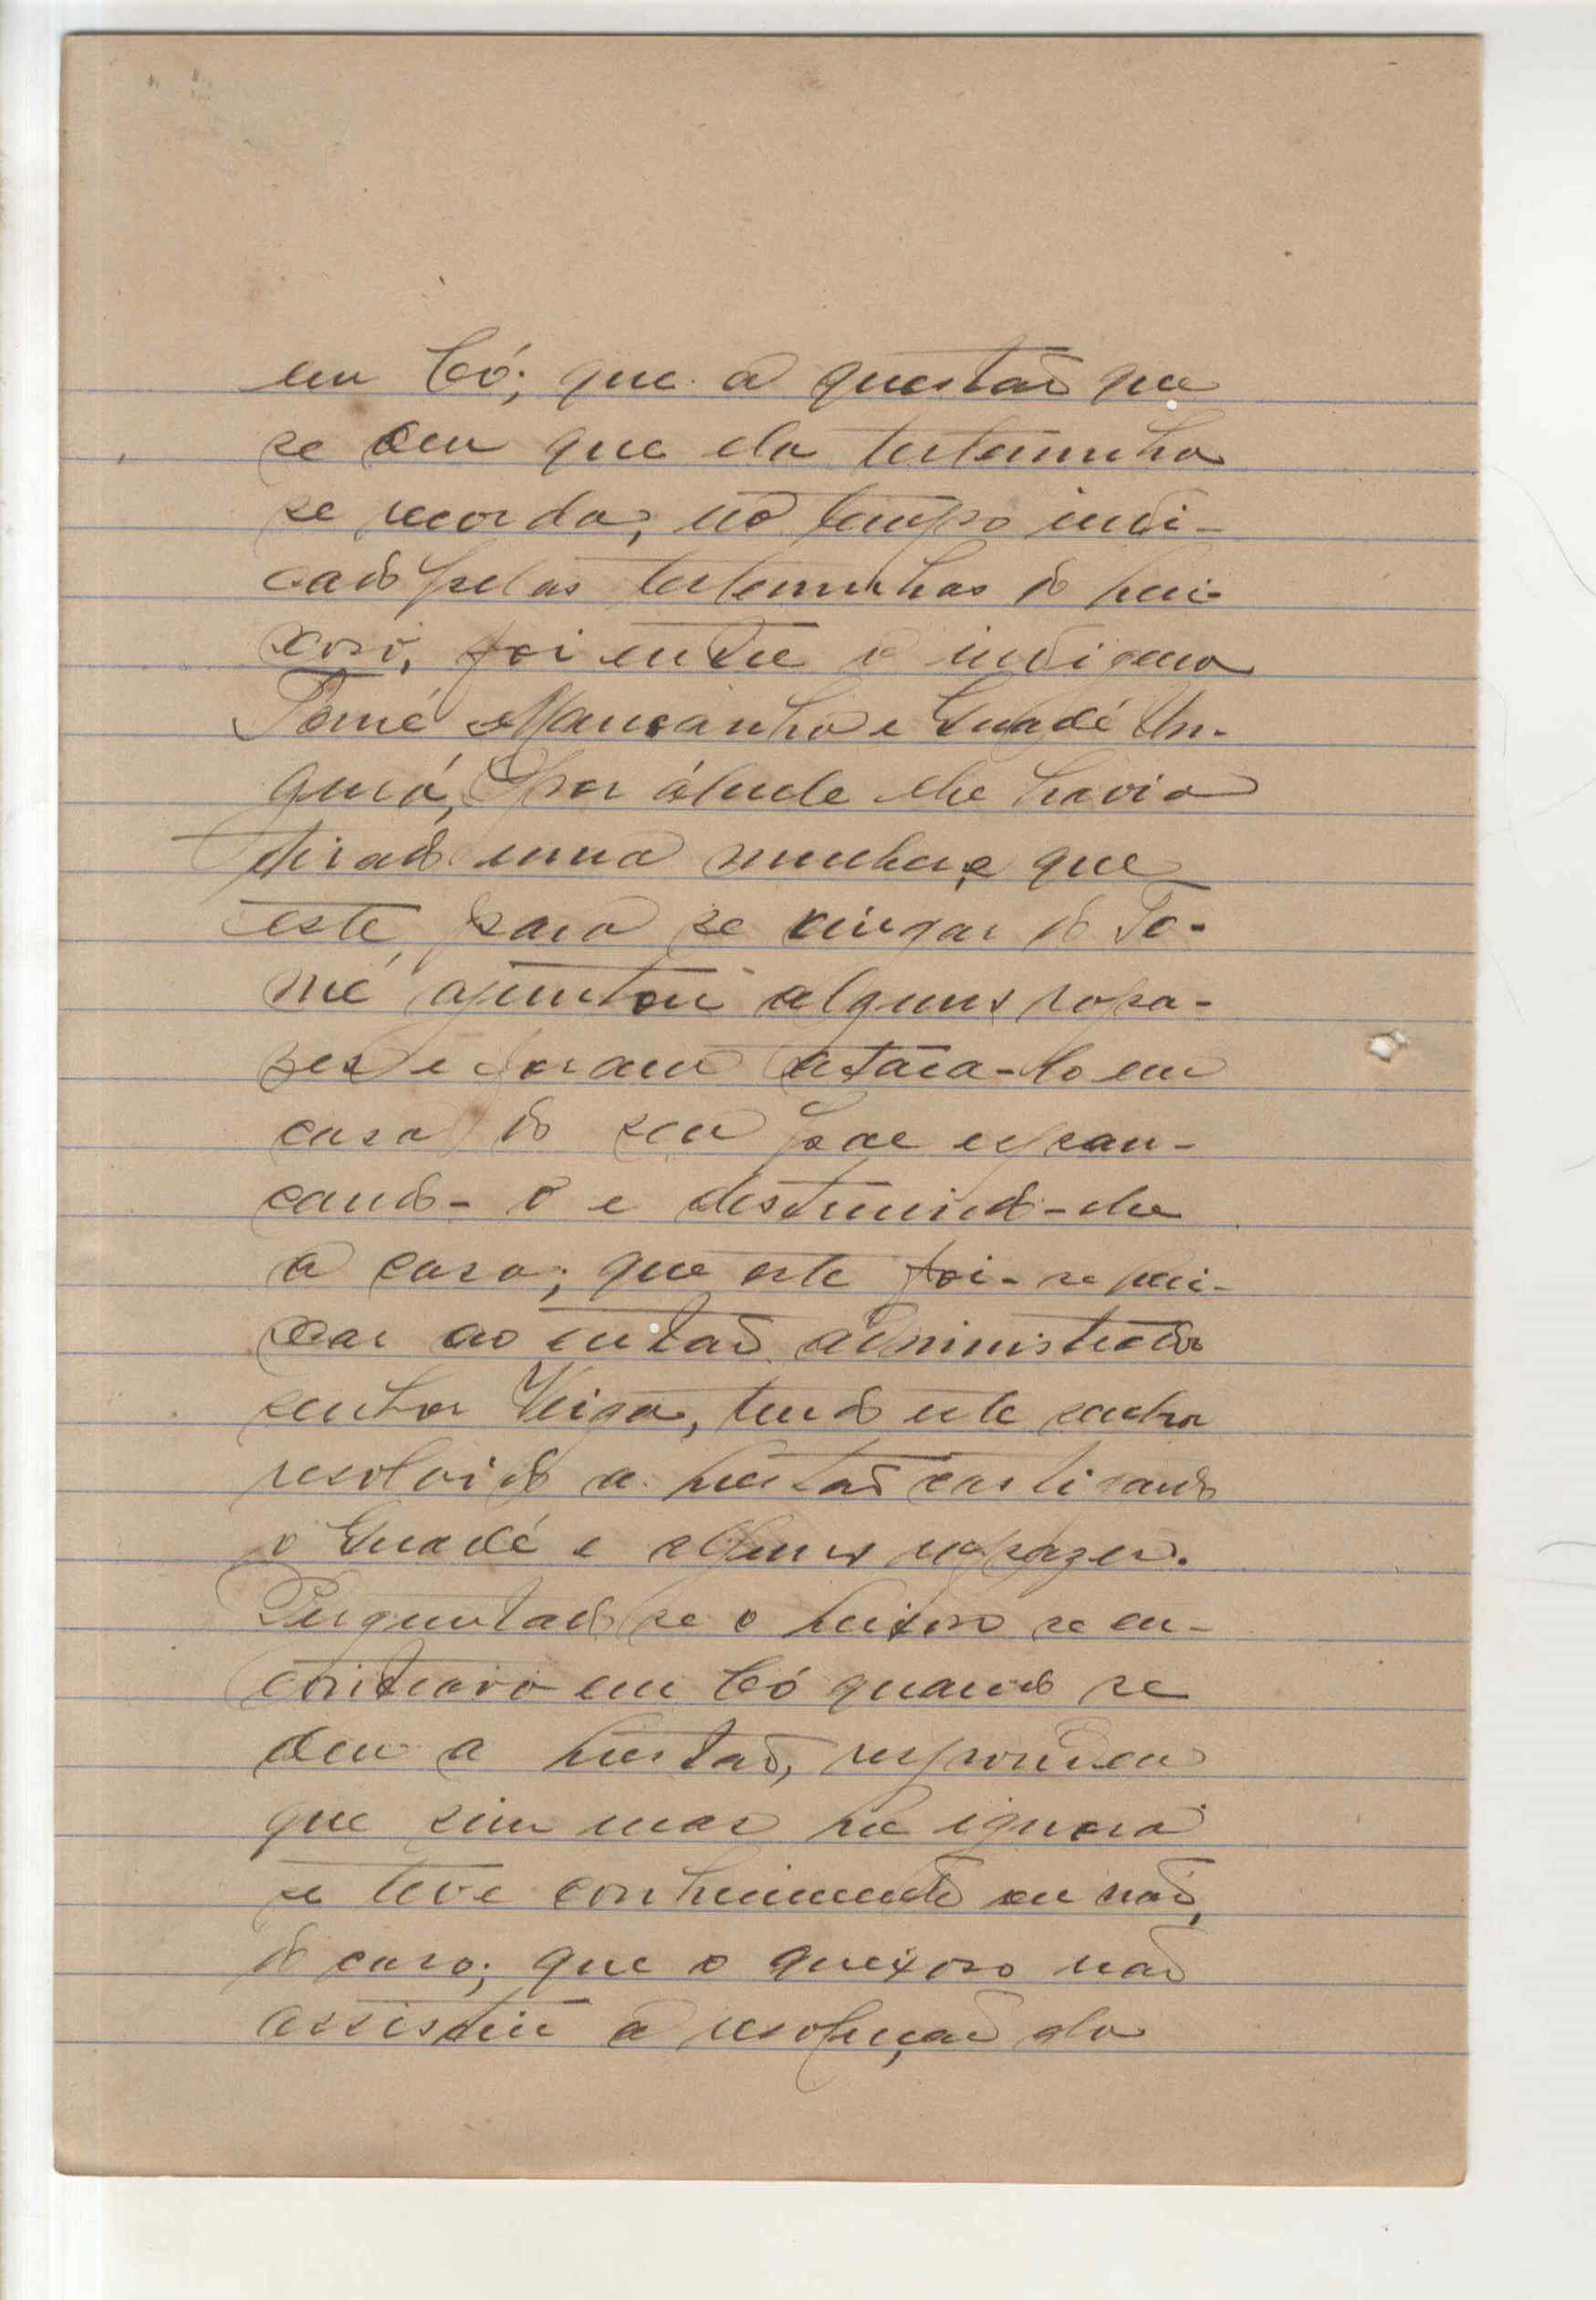 em Có; que a questão que
se deu que ela testemunha
se recorda, no tempo indi-
cado pelas testemunhas do quei-
xoso, foi entre o indigena
Tomé Mansanho e Guadé Un-
querá, por áquele lhe havia
tirado uma mulher, e que
este, para se vingar do To-
mé ajuntou alguns rapa-
zes e foram ataca-lo em
casa do seu pae espan-
cando-o e destruindo-lhe
a casa; que este foi-se quei-
xar ao então administrador
senhor Veiga, tendo este senhor
resolvido a questão castigando
o Guadé e alguns rapazes.
Perguntado se o queixoso se en-
contrava em Có quando se
deu a questão, respondeu
que sim mas que ignora
se teve conhecimento ou não,
do caso; que o queixoso não
assistiu a resolução da